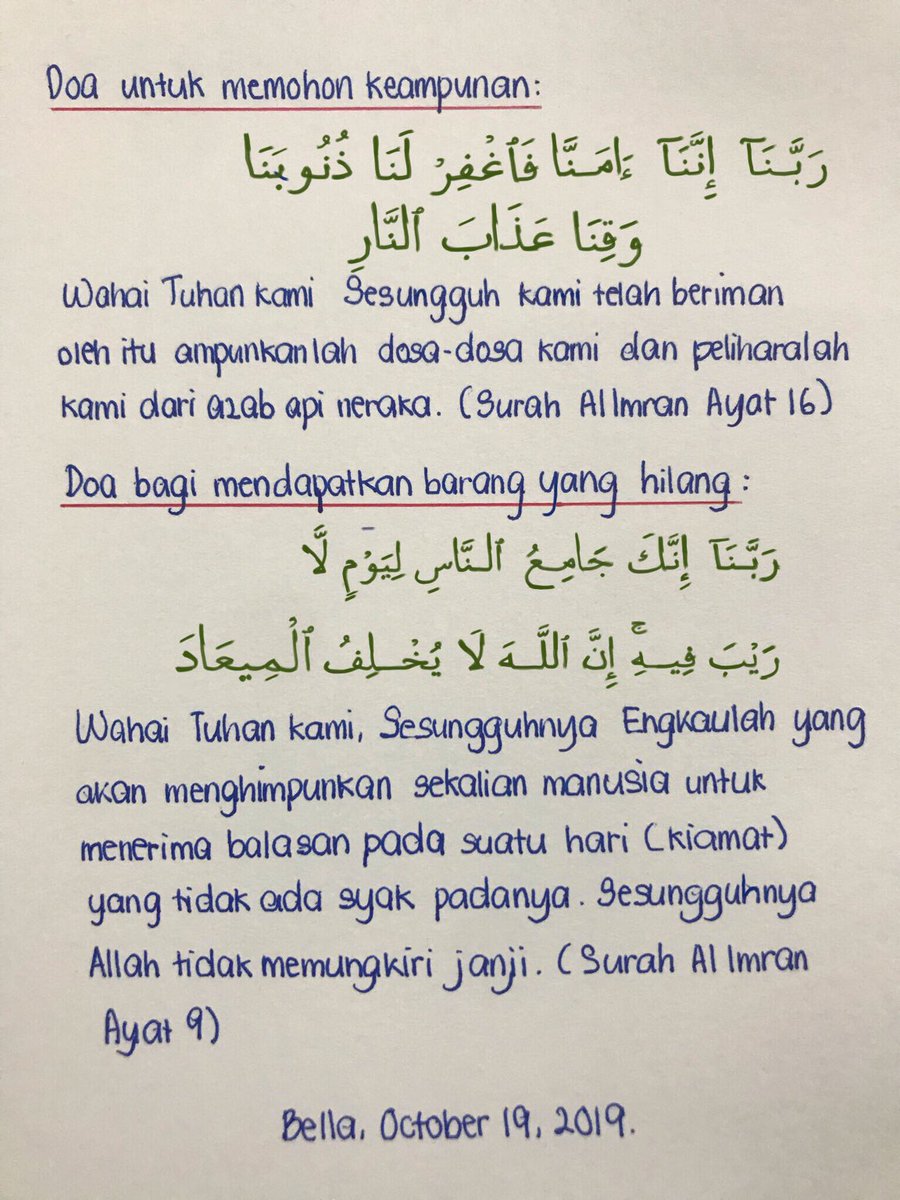 Doa untuk memohon keampunan:
رَبَّنَآ إِنَّنَآ ءَامَنَّا فَٱغْفِرْ لَنَا ذُنُوبَنَا
وَقِنَا عَذَابَ ٱلنَّارِ
Wahai Tuhan kami Sesungguh kami telah beriman
oleh itu ampunkanlah dosa-dosa kami dan peliharalah
kami dari azab api neraka. (Surah Al Imran Ayat 16)
Doa bagi mendapatkan barang yang hilang:
رَبَّنَآ إِنَّكَ جَامِعُ ٱلنَّاسِ لِيَوْمٍ لَّا
رَيْبَ فِيهِۚ إِنَّ ٱللَّهَ لَا يُخْلِفُ ٱلْمِيعَادَ
Wahai Tuhan kami, Sesungguhnya Engkaulah yang
akan menghimpunkan sekalian manusia untuk
menerima balasan pada suatu hari (kiamat)
yang tidak ada syak padanya. Sesungguhnya
Allah tidak memungkiri janji. (Surah Al Imran
Ayat 9)
Bella, October 19, 2019.